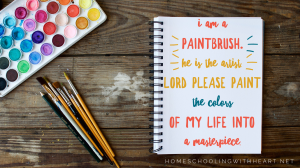 i am a
PAINTBRUSH.
he is the artist
LORD PLEASE PAINT
the colors
OF MY LIFE INTO
a masterpiece
HOMESCHOOLINGWITHHEART.NET